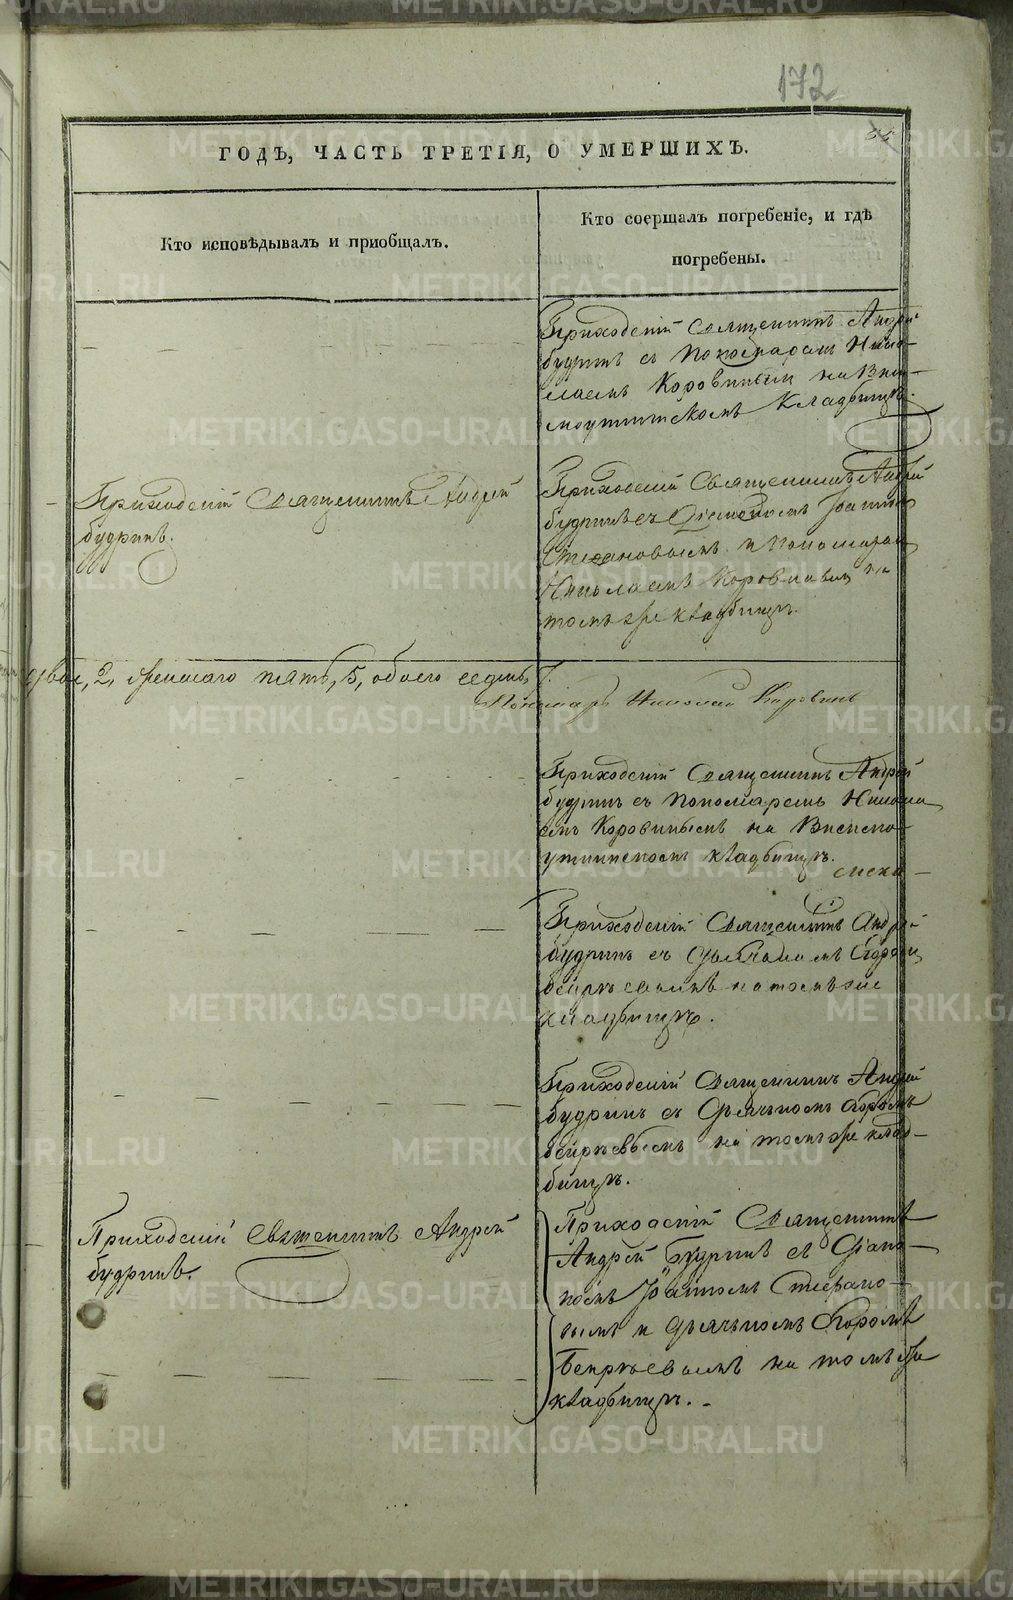 172
ГОДЪ, ЧАСТЬ ТРЕТІЯ, О УМЕРШИХЪ.
Кто исповѣдывалъ и приобщалъ.
Кто соершалъ погребеніе, и гдѣ
погребены.
Приходскій Священникъ Андрей
Будринъ съ Пономаремъ Нико-
лаемъ Коровинымъ на
Кладбищѣ.
Приходскій Священникъ Андрей
Будринъ.
Приходскій Священникъ Андрей
Будринъ съ Діакономъ Іоанномъ
Стефановымъ и Пономаремъ
Николаемъ Коровинымъ на
томъ же кладбищѣ.
двое, 2, женскаго пять, 5, обоего седмь, 7.
Пономарь Николай Коровинъ
Приходскій Священникъ Андрей
Будринъ съ Пономаремъ Никола-
емъ Коровинымъ на
кладбищѣ.
Приходскій Священникъ Андрей
Будринъ съ Дьячкомъ
на томъ же
кладбищѣ.
Приходскій Священникъ Андрей
Будринъ съ Дьячкомъ
на томъ же клад-
бищѣ.
Приходскій Священникъ Андрей
Будринъ.
Приходскій Священникъ
Андрей Будринъ съ Діако-
номъ Іоанномъ Стефано-
вымъ и Дьячкомъ
на томъ же
кладбищѣ.
METRIKI.GASO-URAL.RU